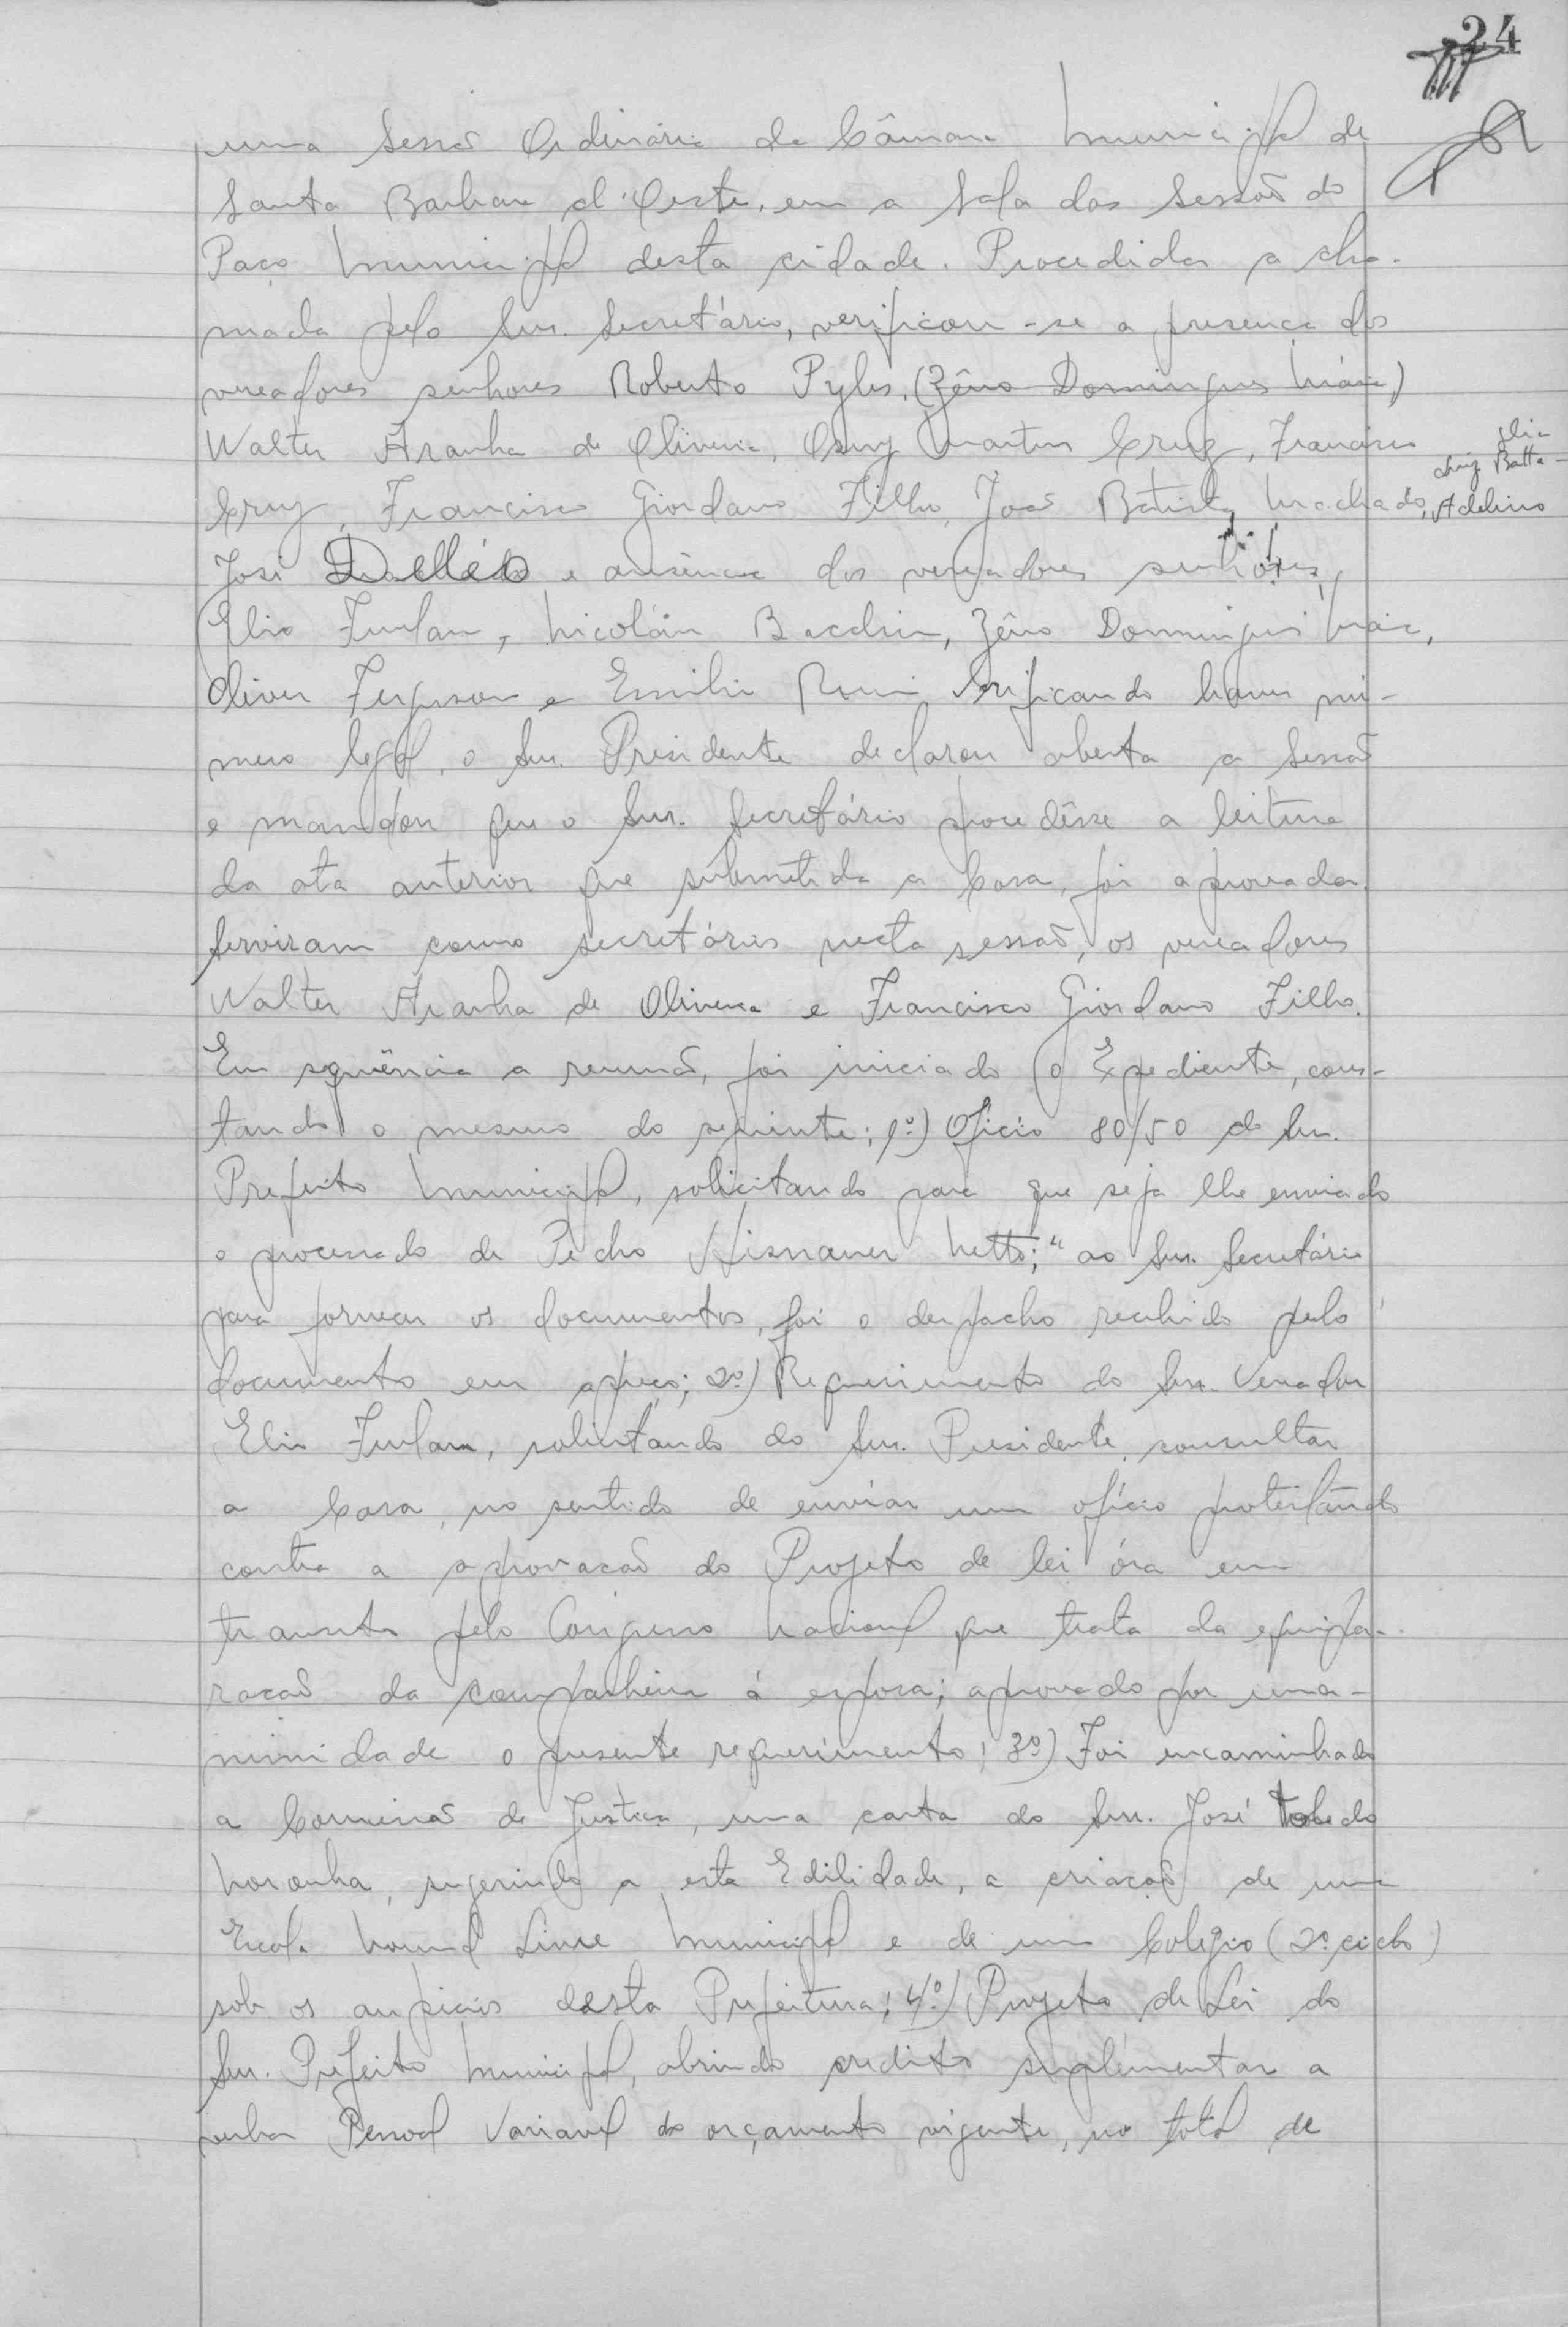 24
uma Sessão Ordinária da Câmara Municipal de
Santa Barbara d'Oeste, em a Sala das Sessão do
Paço Municipal desta cidade. Procedida a cha-
mada pelo Snr. Secretário, verificou-se a presença dos
vereadores senhores Roberto Pyles, (Zêno Domingues Maia)
Walter Aranha de Oliveira, Osny Martins Cruz, Francisco
Cruz, Francisco Giordano Filho, João Batista Machado, Adelino
José Delléo e ausência dos vereadores senhores,
Elio Furlan, Nicoláu Bacchin, Zêno Domingues Maia,
Oliver Ferguson e Emilio Romi. Verificando haver nú-
mero legal, o Snr. Presidente declarou aberta a sessão
e mandou que o Snr. Secretário procedêsse a leitura
da ata anterior que submetida a Casa, foi aprovada.
Serviram como secretários nesta sessão, os vereadores
Walter Aranha de Oliveira e Francisco Giordano Filho.
Em sequência a reunião, foi iniciado o Expediente, cons-
tando o mesmo do seguinte: 1º) Oficio 80/50 do Snr.
Prefeito Municipal, solicitando para que seja lhe enviado
o processado de Pedro Netto; "ao Snr. Secretário
para fornecer os documentos, foi o despacho recebido pelo
documento em apreço; 2º) Requerimento do Snr. Vereador
Elio Furlan, solicitando do Snr. Presidente, consultar
a Casa, no sentido de enviar um ofício protestando
contra a aprovacão do Projeto de lei óra em
transito pelo Congresso Nacional que trata da equipa-
racão da companheira á esposa; aprovado por una-
nimidade o presente requerimento; 3º) Foi encaminhado
a Comissão de Justiça, uma carta do Snr. José Toledo
Noronha, sugerindo a esta Edilidade, a criação de uma
Escola Normal Livre Municipal e de um Colegio (2º. ciclo)
sob os auspicios desta Prefeitura; 4º) Projeto de Lei do
Snr. Prefeito Municipal, abrindo credito suplementar a
verba Pessoal Variavel do orçamento vigente, no total de